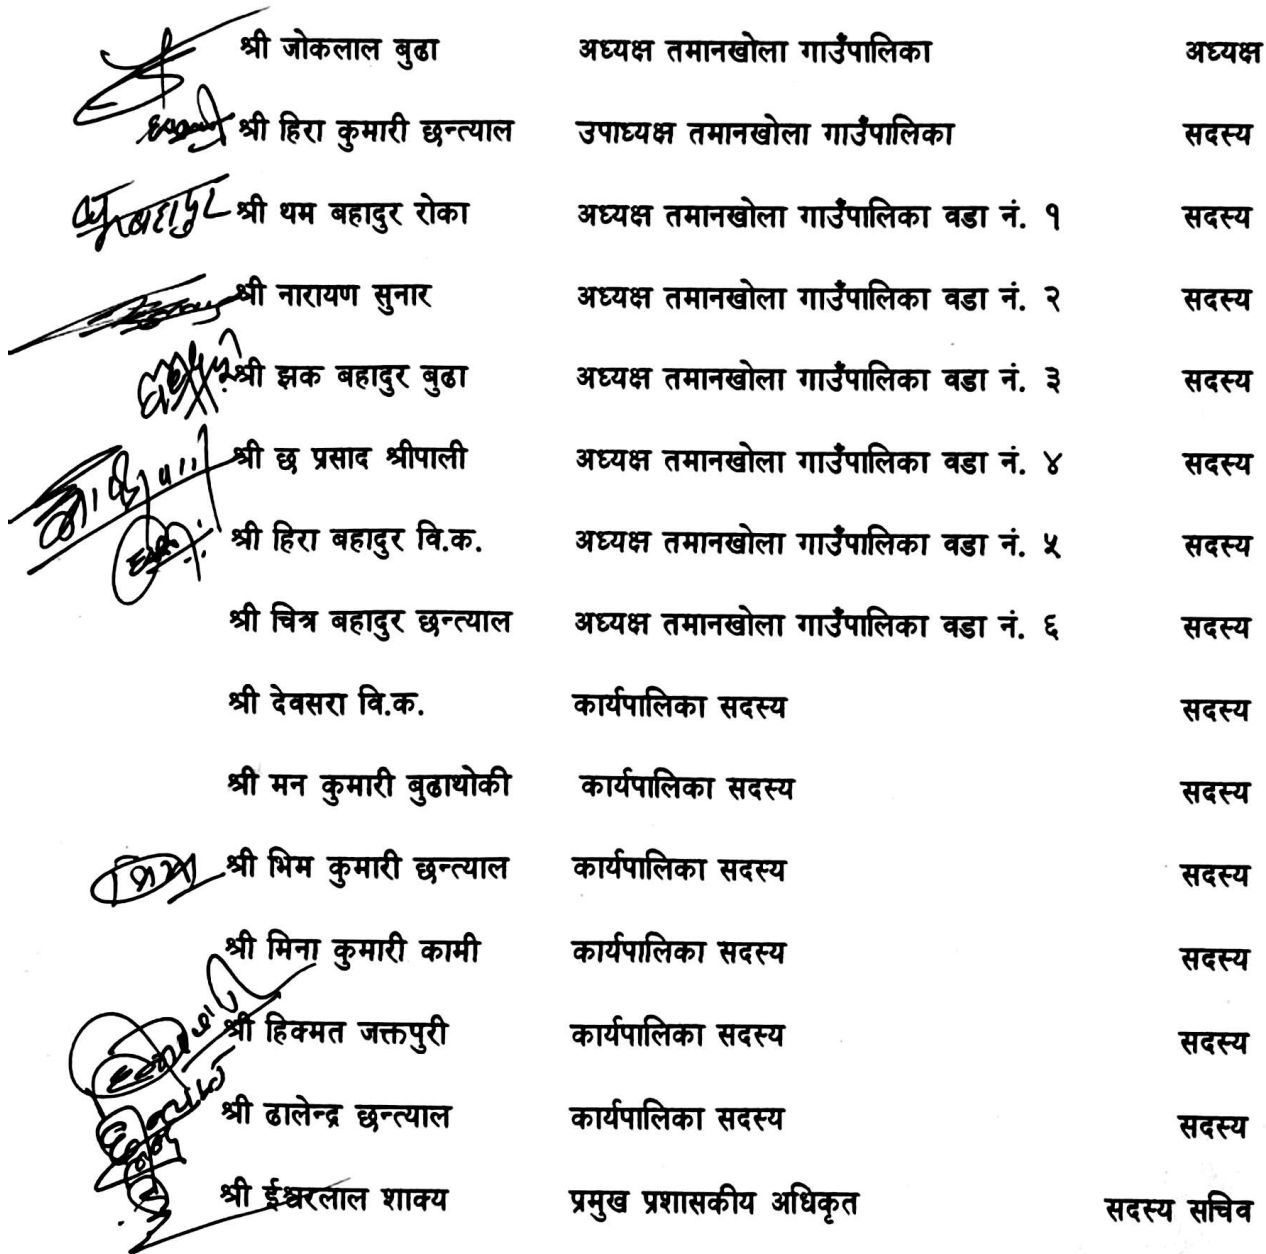 श्री जोकलाल बुढा अध्यक्ष तमानखोला गाउँपालिका अध्यक्ष
श्री हिरा कुमारी छन्त्याल उपाध्यक्ष तमानखोला गाउँपालिका सदस्य
श्री थम बहादुर रोका अध्यक्ष तमानखोला गाउँपालिका वडा नं. १ सदस्य
श्री नारायण सुनार अध्यक्ष तमानखोला गाउँपालिका वडा नं. २ सदस्य
श्री झक बहादुर बुढा अध्यक्ष तमानखोला गाउँपालिका वडा नं. ३ सदस्य
श्री छ प्रसाद श्रीपाली अध्यक्ष तमानखोला गाउँपालिका वडा नं. ४ सदस्य
श्री हिरा बहादुर वि.क. अध्यक्ष तमानखोला गाउँपालिका वडा नं. ५ सदस्य
श्री चित्र बहादुर छन्त्याल अध्यक्ष तमानखोला गाउँपालिका वडा नं. ६ सदस्य
श्री देवसरा वि.क. कार्यपालिका सदस्य सदस्य
श्री मन कुमारी बुढाथोकी कार्यपालिका सदस्य सदस्य
श्री भिम कुमारी छन्त्याल कार्यपालिका सदस्य सदस्य
श्री मिना कुमारी कामी कार्यपालिका सदस्य सदस्य
श्री हिक्मत जक्तपुरी कार्यपालिका सदस्य सदस्य
श्री ढालेन्द्र छन्त्याल कार्यपालिका सदस्य सदस्य
श्री ईश्वरलाल शाक्य प्रमुख प्रशासकीय अधिकृत सदस्य सचिव